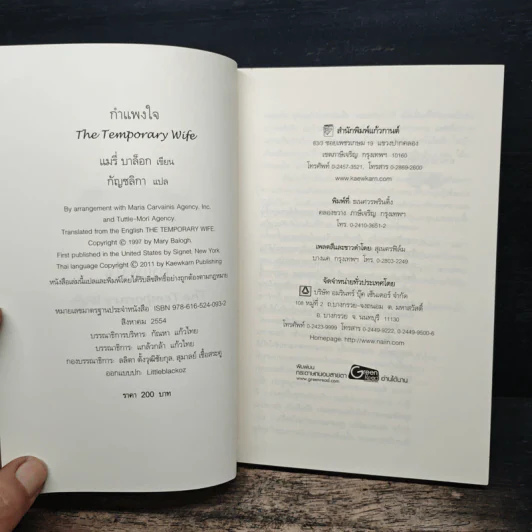 กำแพงใจ
The Temporary Wife
แมรี่ บาล็อก เขียน
กัญชลิกา แปล
By arrangement with Maria Carvainis Agency, Inc.
and Tuttle-Mori Agency.
Translated from the English THE TEMPORARY WIFE:
Copyright © 1997 by Mary Balogh.
First published in the United States by Signet, New York.
Thai language Copyright © 2011 by Kaewkarn Publishing
หนังสือเล่มนี้แปลและพิมพ์โดยได้รับลิขสิทธิ์อย่างถูกต้องตามกฎหมาย
หมายเลขมาตรฐานประจำหนังสือ ISBN 978-616-524-093-2
สิงหาคม 2554
บรรณาธิการบริหาร: กัณหา แก้วไทย
บรรณาธิการ: แกล้วกล้า แก้วไทย
กองบรรณาธิการ: ลลิตา ตั้งวุฒิชัยกุล, สุมาลย์
ออกแบบปก: Littleblackoz
ราคา 200 บาท
สำนักพิมพ์แก้วกานต์
ซอยเพชรเกษม 19 แขวงปากคลอง
เขตภาษีเจริญ กรุงเทพฯ 10160
โทรศัพท์ 0-2457-3521, โทรสาร
www.kaewkarn.com
พิมพ์ที่: ธนดวรพรินติ้ง
คลองขวาง ภาษีเจริญ กรุงเทพฯ
โทร. 0-2410-3651-2
เพลตสีและขาวดำโดย สุณตรฟิล์ม
บางแค กรุงเทพฯ โทร. 0-2803-2249
จัดจำหน่ายทั่วประเทศโดย
บริษัท อมรินทร์ บุ๊ค เซ็นเตอร์ จำกัด
108 หมู่ที่ 2 ถ.บางกรวย-จงถนอม ต. มหาสวัสดิ์
อ. บางกรวย จ. นนทบุรี 11130
โทรศัพท์ 0-2423-9999 โทรสาร 0-2449-9222, 0-2449-9500-6
Homepage: http://www.naiin.com
พิมพ์บน
กระดาษถนอมสายตา Green Read อ่านได้นาน
www.greenread.com